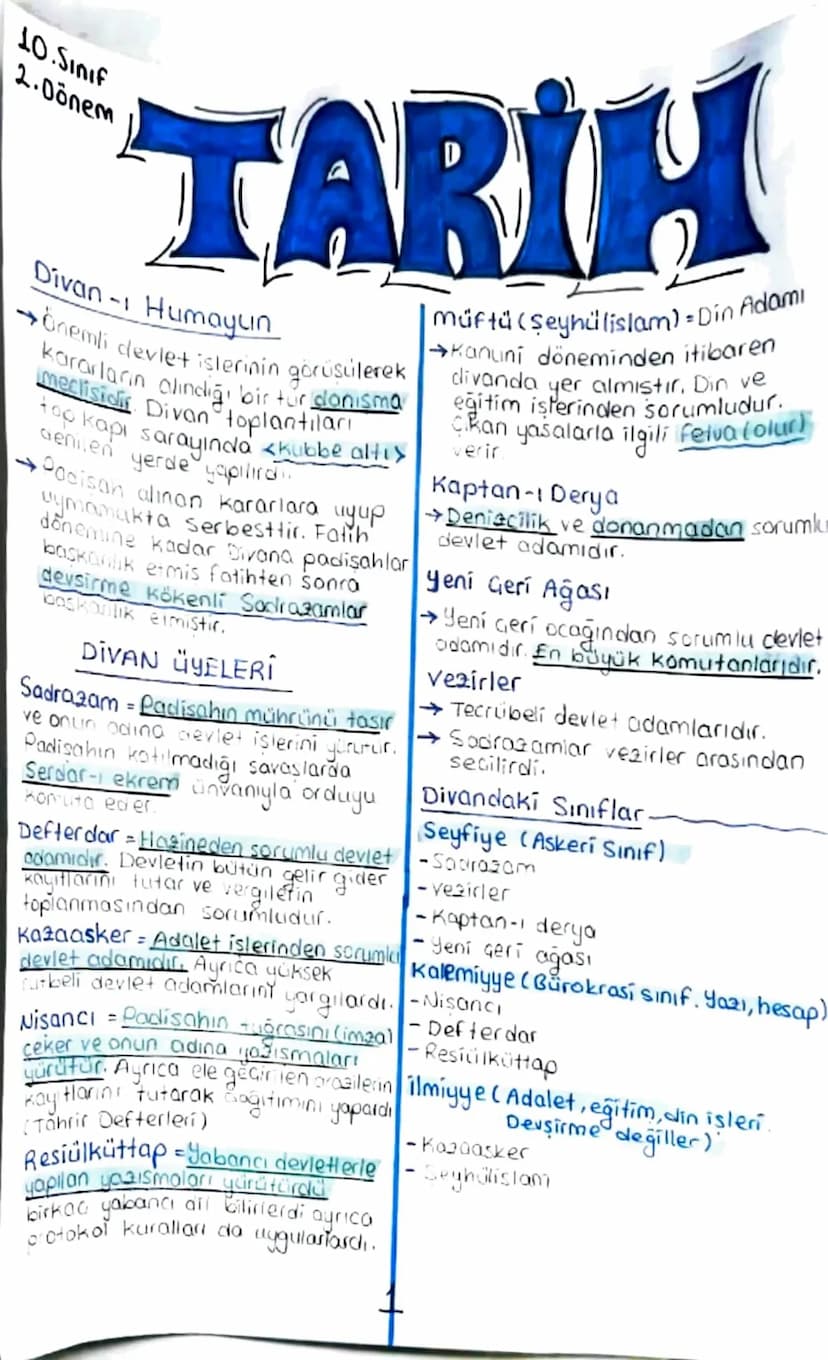 10.Sınıf
2.Dönem
TARİH
Divan-ı Humayun
→Önemli devlet işlerinin görüsülerek
kararların alındığı bir tür danısma
meclisidir. Divan toplantıları
topkapı sarayında <kubbe altı>
denilen yerde yapılırdı.
→Padisah alınan kararlara uyup
uymamakta serbesttir. Fatih
dönemine kadar Divana padişahlar
baskanlık etmis fatihten sonra
devsirme kökenli Sadrazamlar
baskanlık etmiştir.
DİVAN ÜYELERİ
Sadrazam = Padisahın mührünü tasır
ve onun adına devlet işlerini yürütür.
Padisahın katılmadığı savaslarda
Serdar-ı ekrem ünvanıyla orduyu
komuta eder.
Defterdar = Hazineden sorumlu devlet
adamıdır. Devletin bütün gelir gider
kayıtlarını tutar ve vergilerin
toplanmasından sorumludur.
Kazaasker = Adalet islerinden sorumlu
devlet adamıdır. Ayrıca yüksek
rütbeli devlet adamlarını yargılardı.
Nisancı = Padisahın tuğrasını (imza)
çeker ve onun adına yazısmaları
yürütür. Ayrıca ele geçirilen arazilerin
kayıtlarını tutarak dağıtımını yapardı
(Tahrir Defterleri)
Resiülküttap = Yabancı devletlerle
yapılan yazısmaları yürütürdü
birkaç yabancı dil bilirlerdi ayrıca
protokol kuralları da uygularlardı.
müftü (Şeyhülislam) = Din Adamı
→Kanuni döneminden itibaren
divanda yer almıstır. Din ve
eğitim işlerinden sorumludur.
Çıkan yasalarla ilgili fetva (olur)
verir.
Kaptan-ı Derya
→Denizcilik ve donanmadan sorumlu
devlet adamıdır.
Yeni Çeri Ağası
→Yeni çeri ocağından sorumlu devlet
adamıdır. En büyük komutanlarıdır.
Vezirler
→ Tecrübeli devlet adamlarıdır.
→ Sadrazamlar vezirler arasından
secilirdi.
Divandaki Sınıflar
Seyfiye (Askeri Sınıf)
-Sadrazam
-vezirler
-Kaptan-ı derya
-Yeni çeri ağası
Kalemiyye (Bürokrasi sınıf. Yazı, hesap)
-Nisancı
-Defterdar
-Resiülküttap
İlmiyye (Adalet, eğitim, din isleri.
Devşirme değiller)
-Kazaasker
-Seyhülislam
1